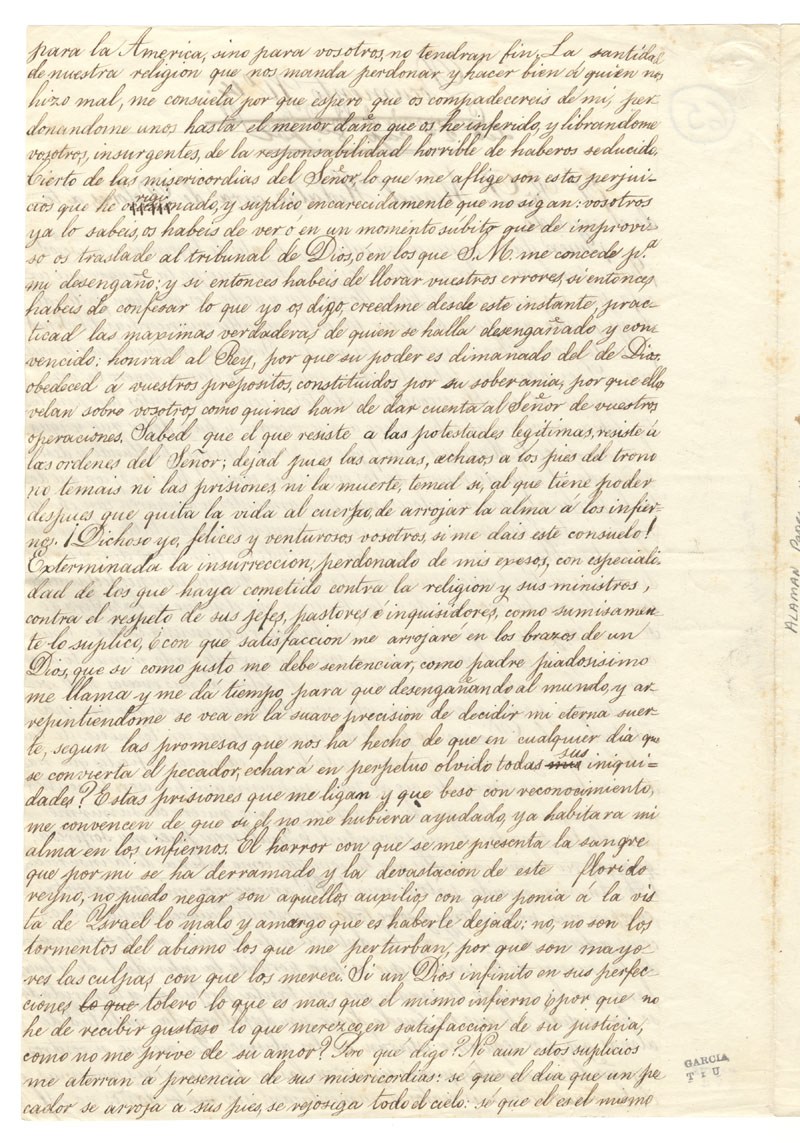 para la America, sino para vosotros, no tendran fin. La santidad
de nuestra religion que nos manda perdonar y hacer bien á quien nos
hizo mal, me consuela por que espero que os compadecereis de mi, per-
donandome unos hasta el menor daño que os he inferido, y librandome
vosotros, insurgentes, de la responsabilidad horrible de haberos seducido,
Cierto de las misericordias del Señor, lo que me aflige son estos perjui-
cios que he originado, y suplico encarecidamente que no sigan: vosotros
ya lo sabeis, os habeis de ver ó en un momento súbito que de improvi-
so os traslade al tribunal de Dios, ó en los que S. M. me concede p.ª
mi desengaño; y si entonces habeis de llorar vuestros errores, si entonces
habeis de confesar lo que yo os digo, creedme desde este instante, prac-
ticad las maximas verdaderas de quien se halla desengañado y con-
vencido: honrad al Rey, por que su poder es dimanado del de Dios,
obedeced á vuestros prepositos, constituidos por su soberania, por que ellos
velan sobre vosotros, como quines han de dar cuenta al Señor de vuestras
operaciones. Sabed que el que resiste a las potestades legitimas, resiste á
las ordenes del Señor; dejad pues las armas, echaos a los pies del trono
no, temais ni las prisiones, ni la muerte, temed si, al que tiene poder
despues que quita la vida al cuerpo, de arrojar la alma á los infier-
nos. ¡Dichoso yo, felices y venturosos vosotros, si me dais este consuelo!
Exterminada la insurreccion, perdonado de mis exesos, con especiali-
dad de los que haya cometido contra la religion y sus ministros,
contra el respeto de sus jefes, pastores é inquisidores, como sumisamen-
te lo suplico, ¿con que satisfaccion me arrojare en los brazos de un
Dios, que si como justo me debe sentenciar, como padre piadosisimo
me llama y me dá tiempo para que desengañando al mundo, y ar-
repintiendome se vea en la suave precision de decidir mi eterna suer-
te, segun las promesas que nos ha hecho de que en cualquier dia que
se convierta el pecador, echará en perpetuo olvido todas mis sus iniqui=
dades? Estas prisiones que me ligan y que beso con reconocimiento,
me convencen de que si el no me hubiera ayudado, ya habitara mi
alma en los infiernos. El horror con que se me presenta la sangre
que por mi se ha derramado y la devastacion de este florido
reyno, no puedo negar son aquellos auxilios con que ponia á la vis
ta de Ysrael lo malo y amargo que es haberle dejado; no, no son los
tormentos del abismo los que me perturban, por que son mayo-
res las culpas con que los mereci. Si un Dios infinito en sus perfec-
ciones lo que tolero lo que es mas que el mismo infierno ¿por que no
he de recibir gustoso lo que merezco, en satisfaccion de su justicia,
como no me prive de su amor? Pero qué digo? Ni aun estos suplicios
me aterran á presencia de sus misericordias: se que el dia que un pe
cador se arroja á sus pies, se rejosiga todo el cielo: sé que el es el mismo
GARCIA
ALAMAN